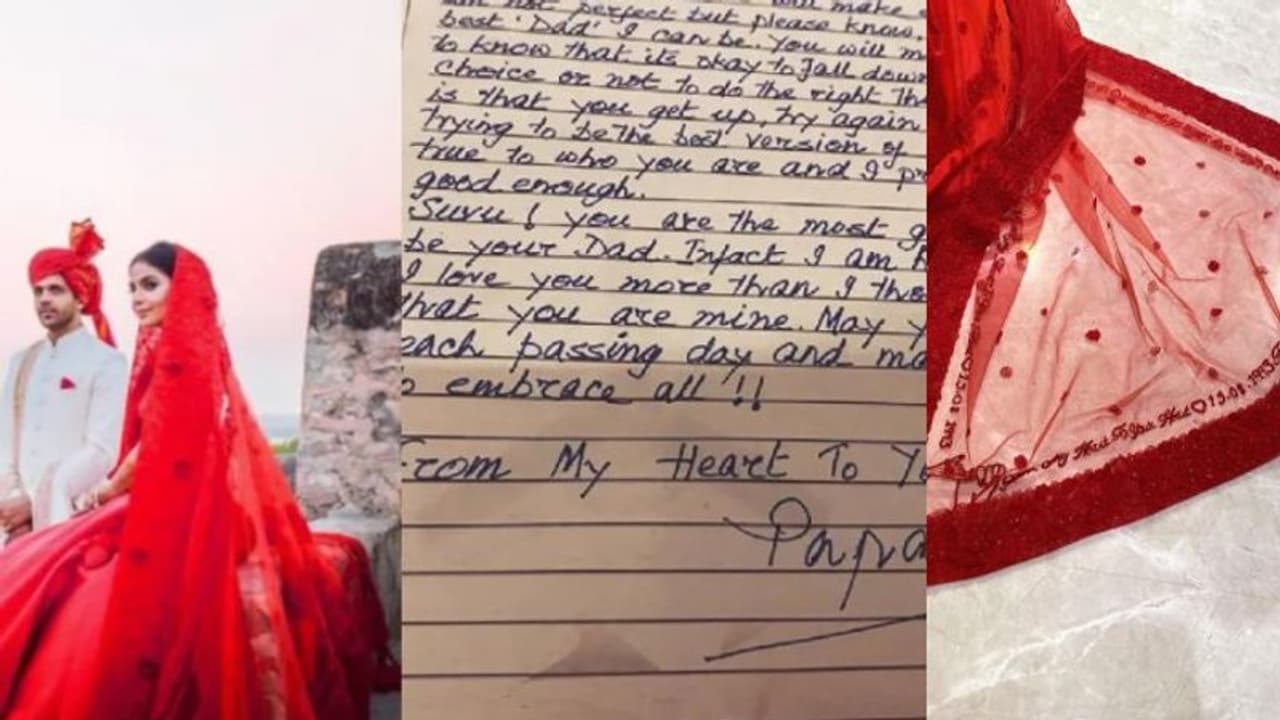 am not perfect but please know.
best 'Dad' I can be. You will m
to know that its okay to fall down
choice or not to do the right Th
is that you get up, try again
trying to be the best version of
true to who you are and I pr
good enough.
Suvu! you are the most g
be your Dad. Infact I am
I love you more than I tho
that you are mine. May y
each passing day and ma
o embrace all !!
From My Heart To Yo
Papa
From My Heart To You Heart ♡ 13.08.1953